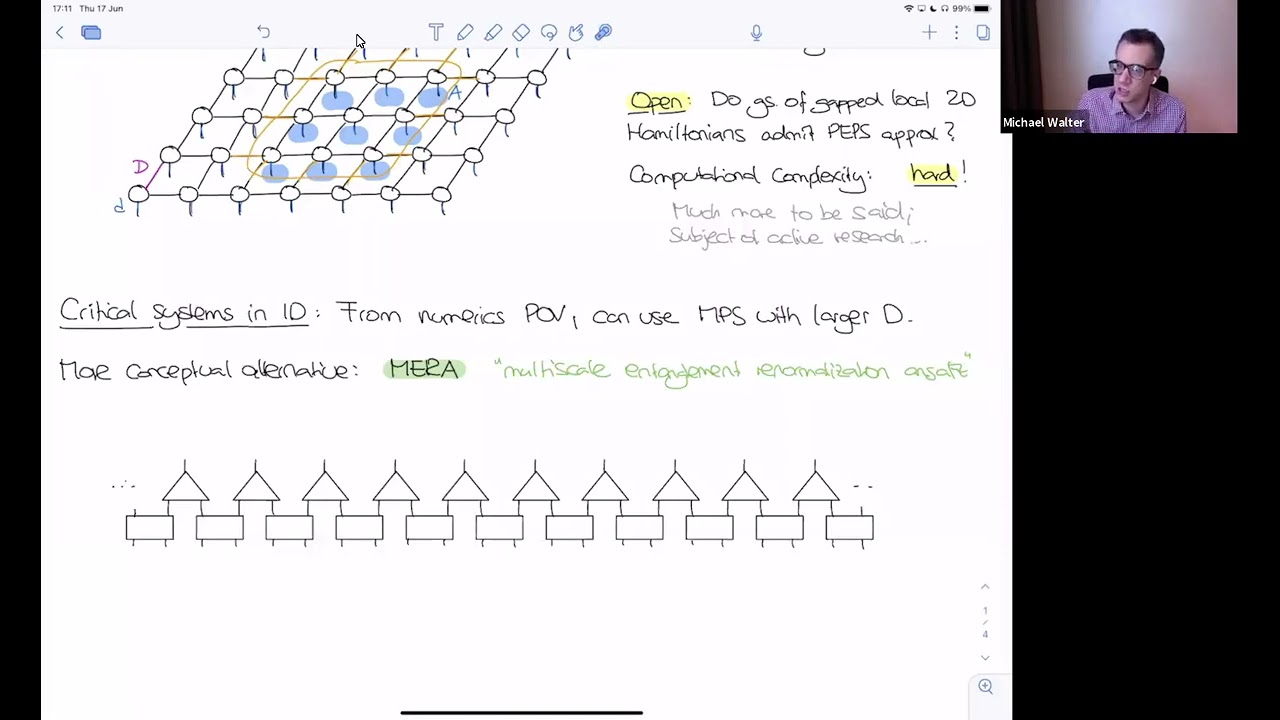 17:11 Thu 17 Jun
99%
T
A
D
d
Open: Do gs. of gapped local 2D
Hamiltonians admit PEPS approx?
Computational Complexity: hard!
Much more to be said;
Subject of active research...
Michael Walter
Critical systems in 1D: From numerics POV, can use MPS with larger D.
More conceptual alternative: MERA "multiscale entanglement renormalization ansatz"
1
/
4